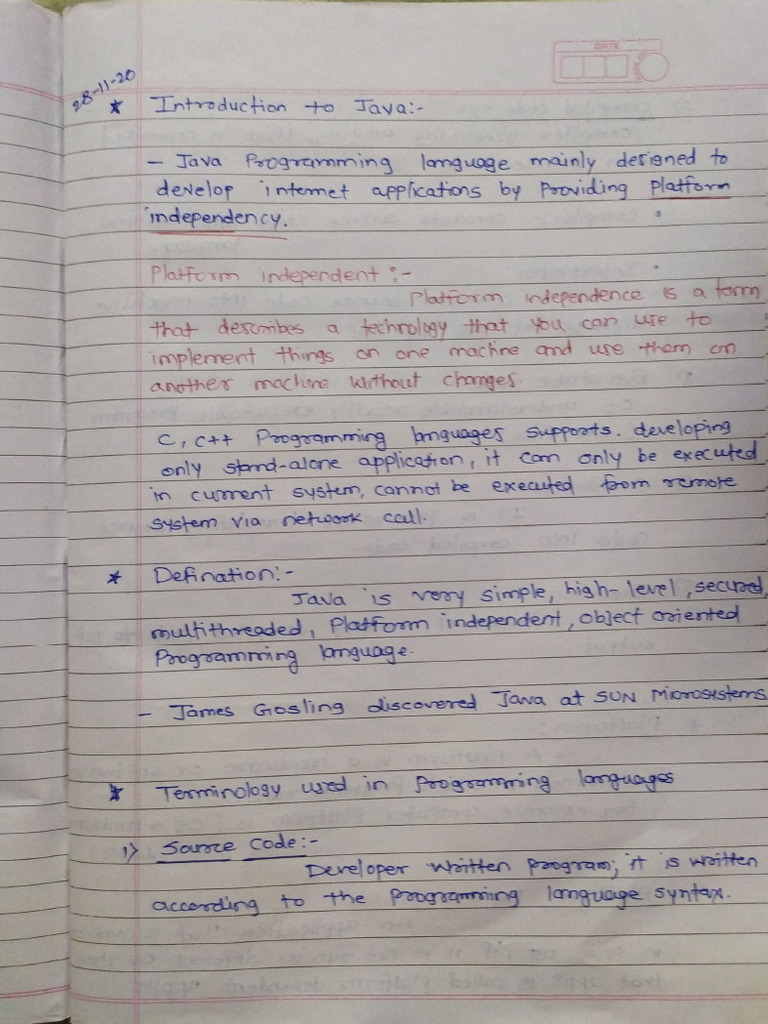 DATE
28-11-20
* Introduction to Java:-
- Java Programming language mainly designed to
develop internet applications by Providing Platform
independency.
Platform independent :-
Platform independence is a term
that describes a technology that you can use to
implement things on one machine and use them on
another machine without changes.
C, C++ Programming languages supports. developing
only stand-alone application, it can only be executed
in current system, cannot be executed from remote
system via network call.
* Defination:-
Java is very simple, high-level, secured,
multithreaded, Platform independent, object oriented
Programming language.
- James Gosling discovered Java at SUN Microsystems
* Terminology used in Programming languages
1) Source code:-
Developer written program; it is written
according to the programming language syntax.